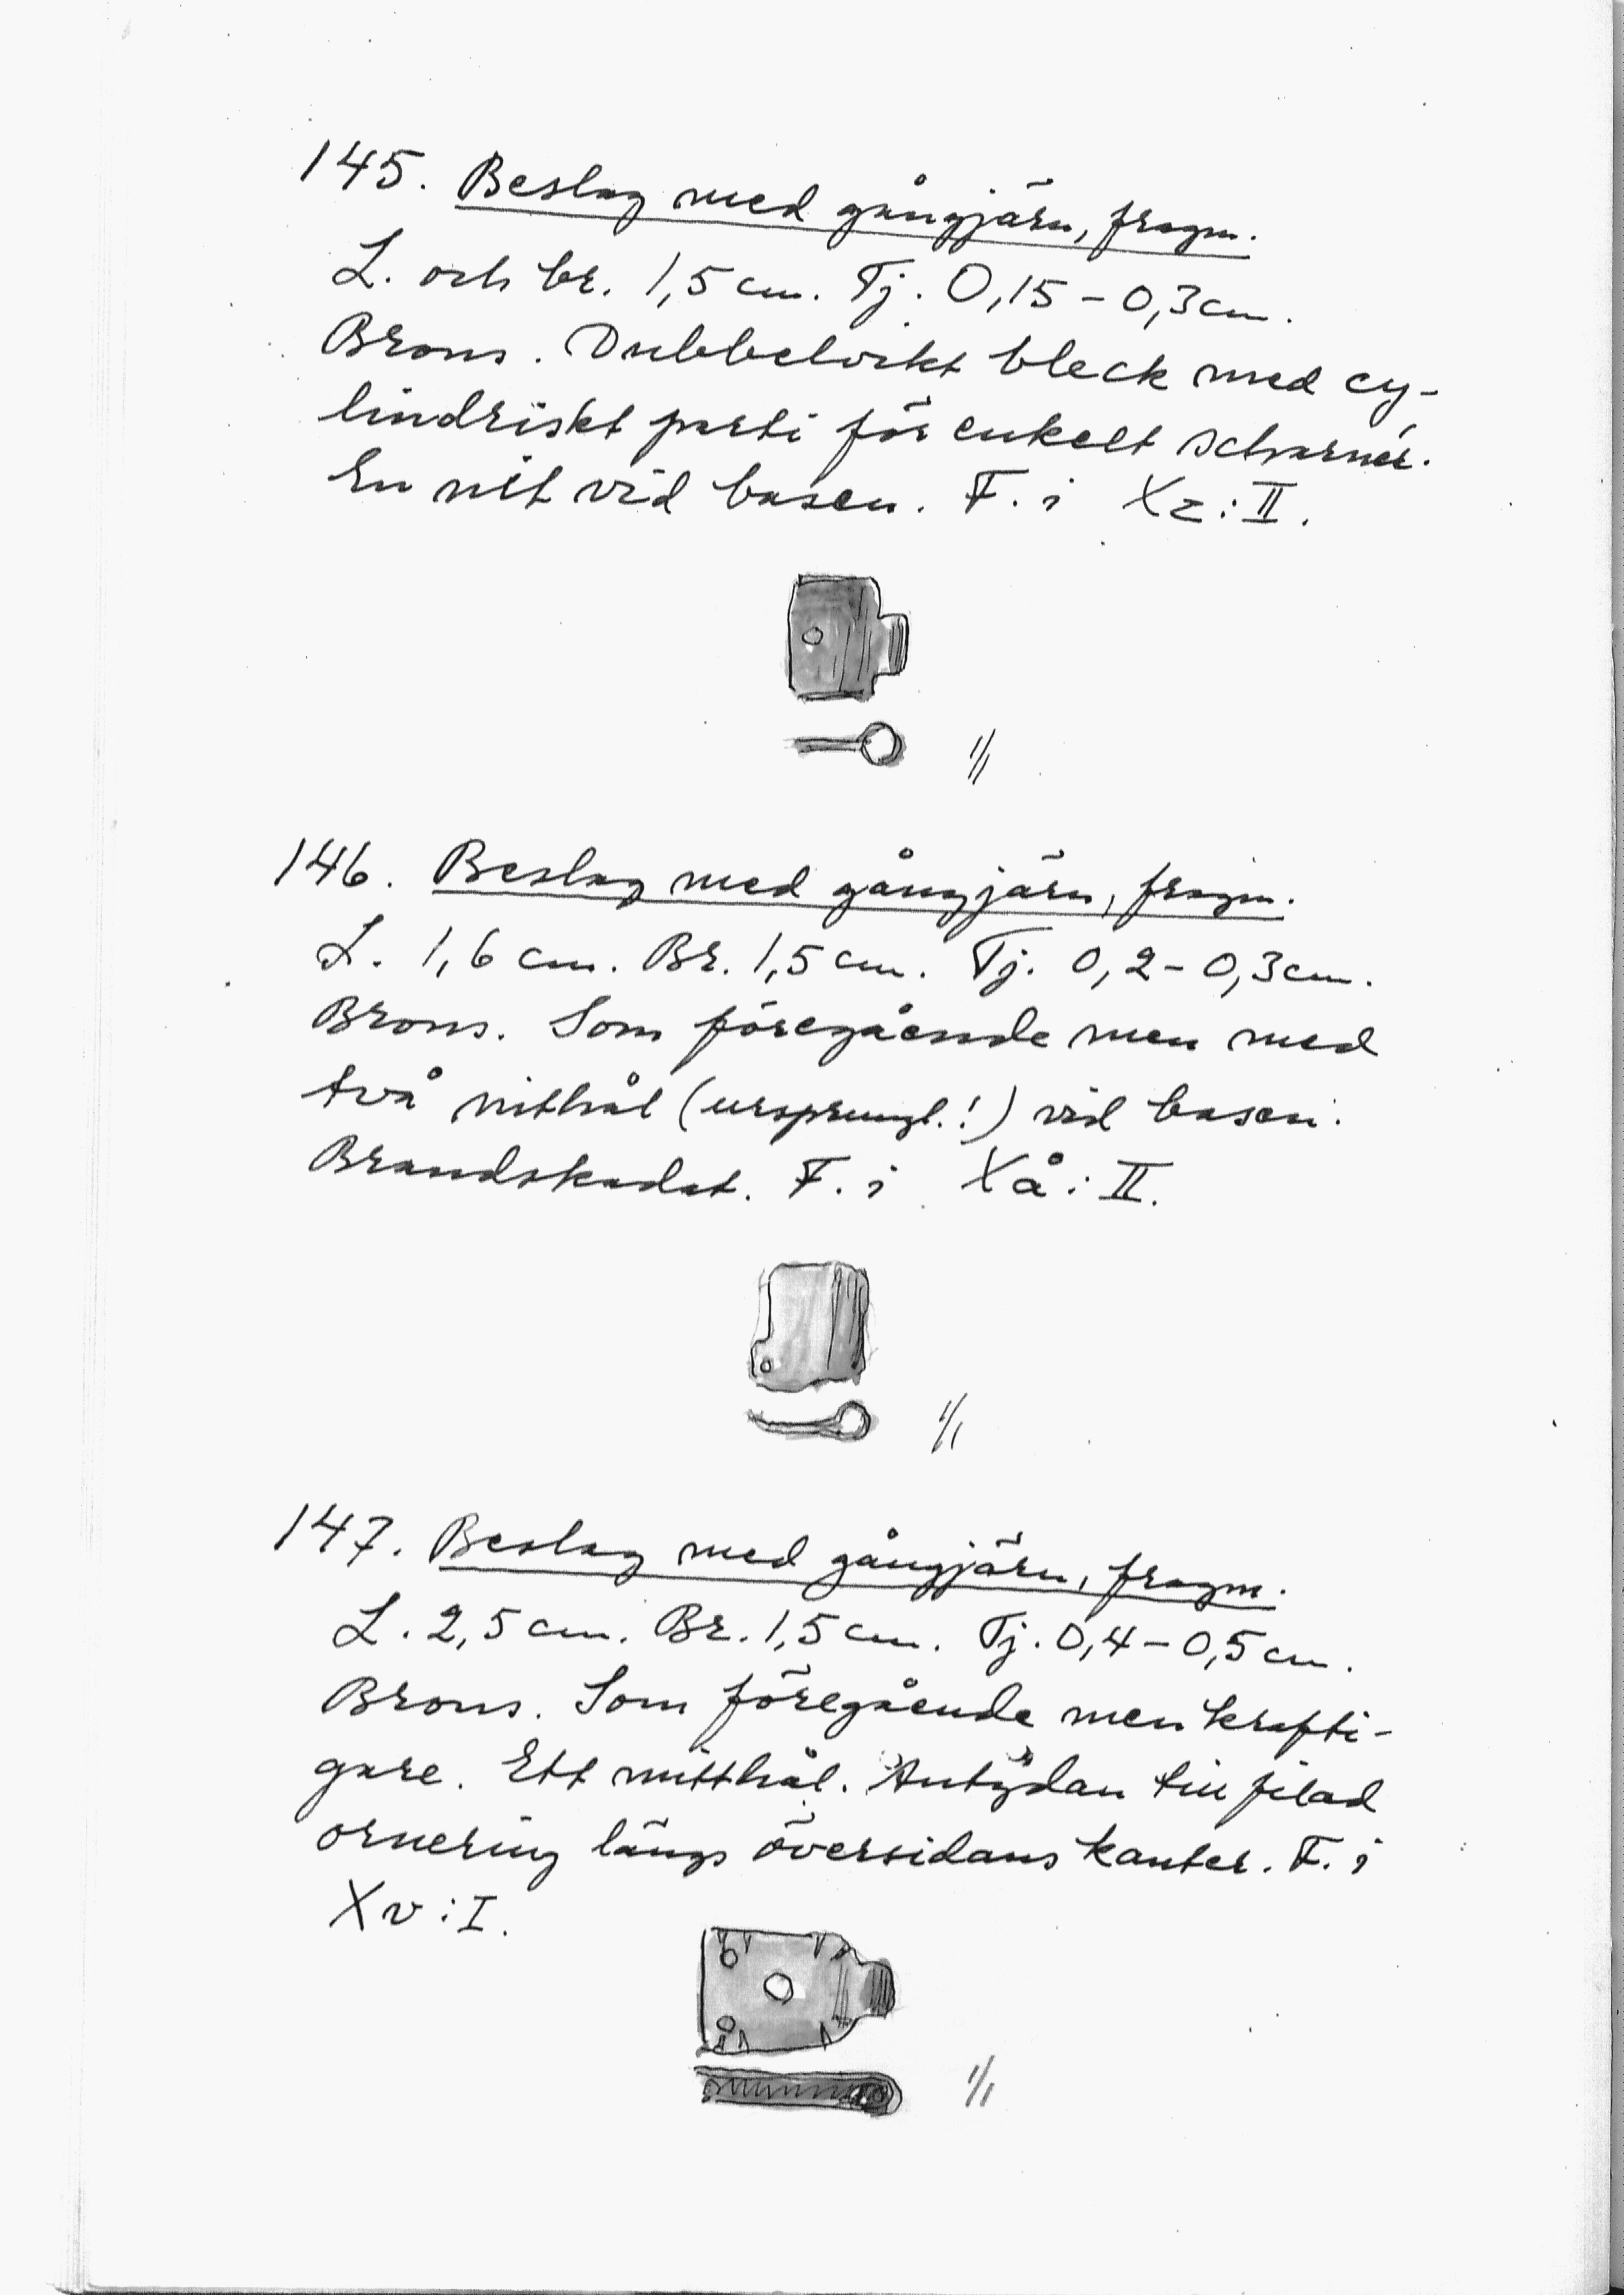 145. Beslag med gångjärn, fragm.
L. och br. 1,5 cm. Tj. 0,15-0,3cm.
Brons. Dubbelvikt bleck med cy-
lindriskt parti för enkelt scharnér.
En nit vid basen. F. i Xz:II.
1/1
146. Beslag med gångjärn, fragm.
L. 1,6 cm. Br. 1,5 cm. Tj. 0,2-0,3cm.
Brons. Som föregående men med
två nithål (ursprungl.!) vid basen.
Brandskadat. F. i Xå:II.
1/1
147. Beslag med gångjärn, fragm.
L. 2,5 cm. Br. 1,5 cm. Tj. 0,4-0,5 cm.
Brons. Som föregående men krafti-
gare. Ett mitthål. Antydan till filad
ornering längs översidans kanter. F. i
Xv:I.
1/1